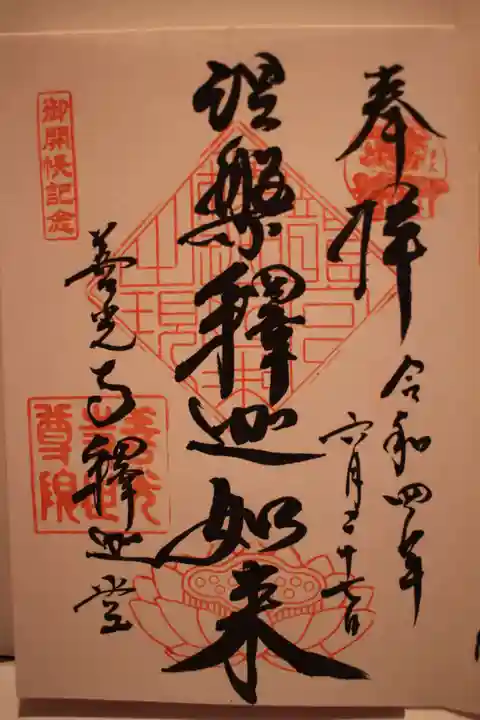 奉拝
令和四年
六月二十七日
涅槃釋迦如来
御開帳記念
善光寺釋迦堂